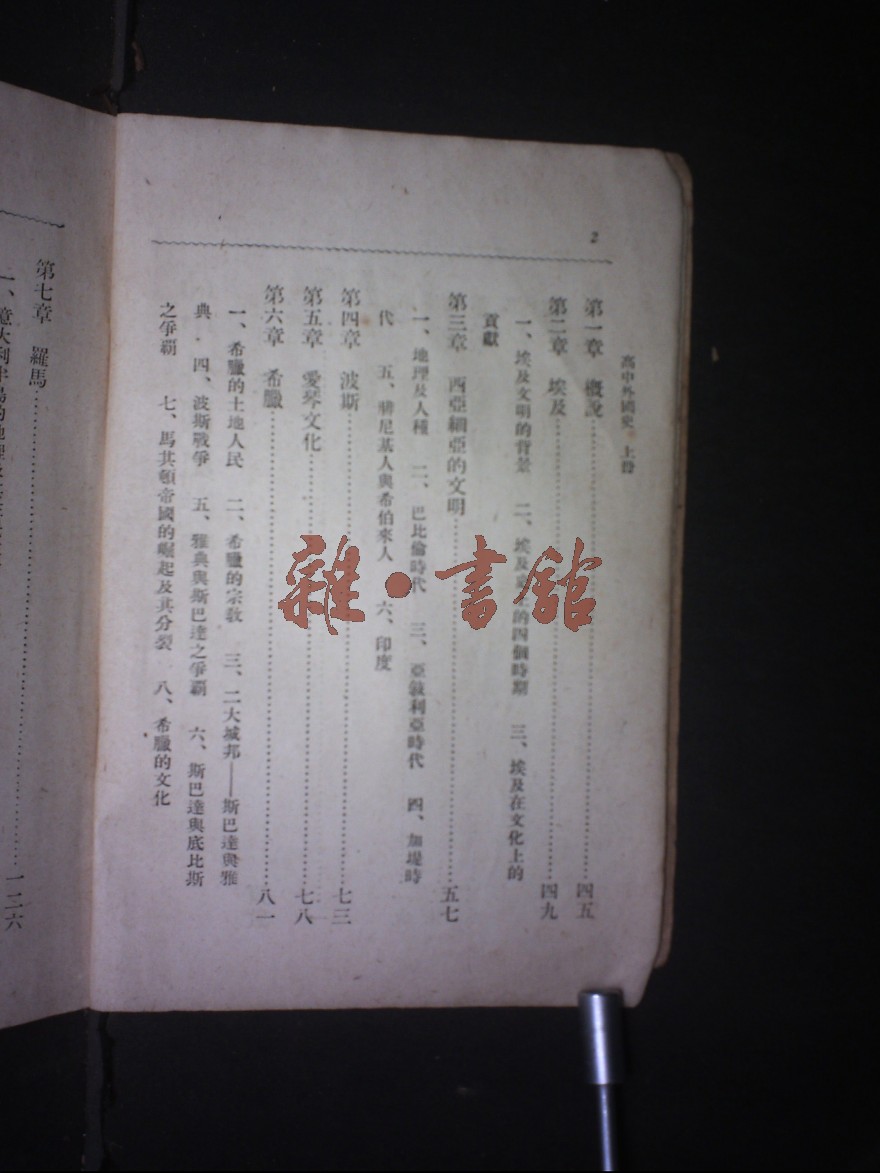 2
高中外國史 上冊
第一章 概說……四五
第二章 埃及……四九
一、埃及文明的背景 二、埃及歷史上的四個時期 三、埃及在文化上的
貢獻
第三章 西亞細亞的文明……五七
一、地理及人種 二、巴比倫時代 三、亞敍利亞時代 四、加堤時
代 五、腓尼基人與希伯來人 六、印度
第四章 波斯……七三
第五章 愛琴文化……七八
第六章 希臘……八一
一、希臘的土地人民 二、希臘的宗教 三、二大城邦——斯巴達與雅
典 四、波斯戰爭 五、雅典與斯巴達之爭覇 六、斯巴達與底比斯
之爭覇 七、馬其頓帝國的崛起及其分裂 八、希臘的文化
第七章 羅馬……一二六
一、意大利半島的地理
雜·書館